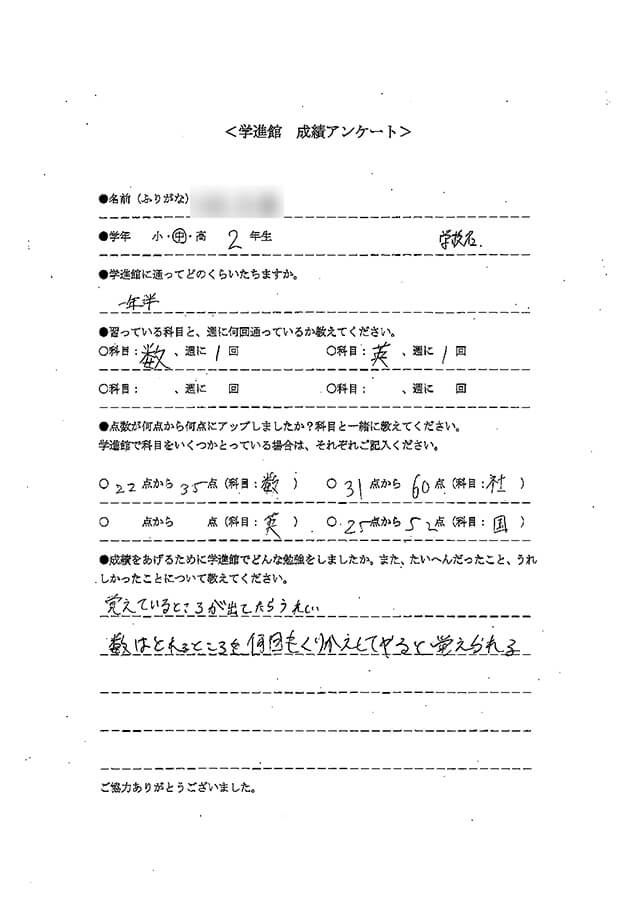 ＜学進館　成績アンケート＞
●名前（ふりがな）
●学年　小・中・高　2　年生　学校名.
●学進館に通ってどのくらいたちますか。
一年半
●習っている科目と、週に何回通っているか教えてください。
○科目：数　、週に　1　回　○科目：英　、週に　1　回
○科目：　、週に　回　○科目：　、週に　回
●点数が何点から何点にアップしましたか？科目と一緒に教えてください。
学進館で科目をいくつかとっている場合は、それぞれご記入ください。
○　22　点から　35　点（科目：数　）　○　31　点から　60　点（科目：社　）
○　点から　点（科目：英　）　○　25　点から　52　点（科目：国　）
●成績をあげるために学進館でどんな勉強をしましたか。また、たいへんだったこと、うれ
しかったことについて教えてください。
覚えているところが出てたらうれしい
数はとれるところを何回もくりかえしてやると覚えられる
ご協力ありがとうございました。